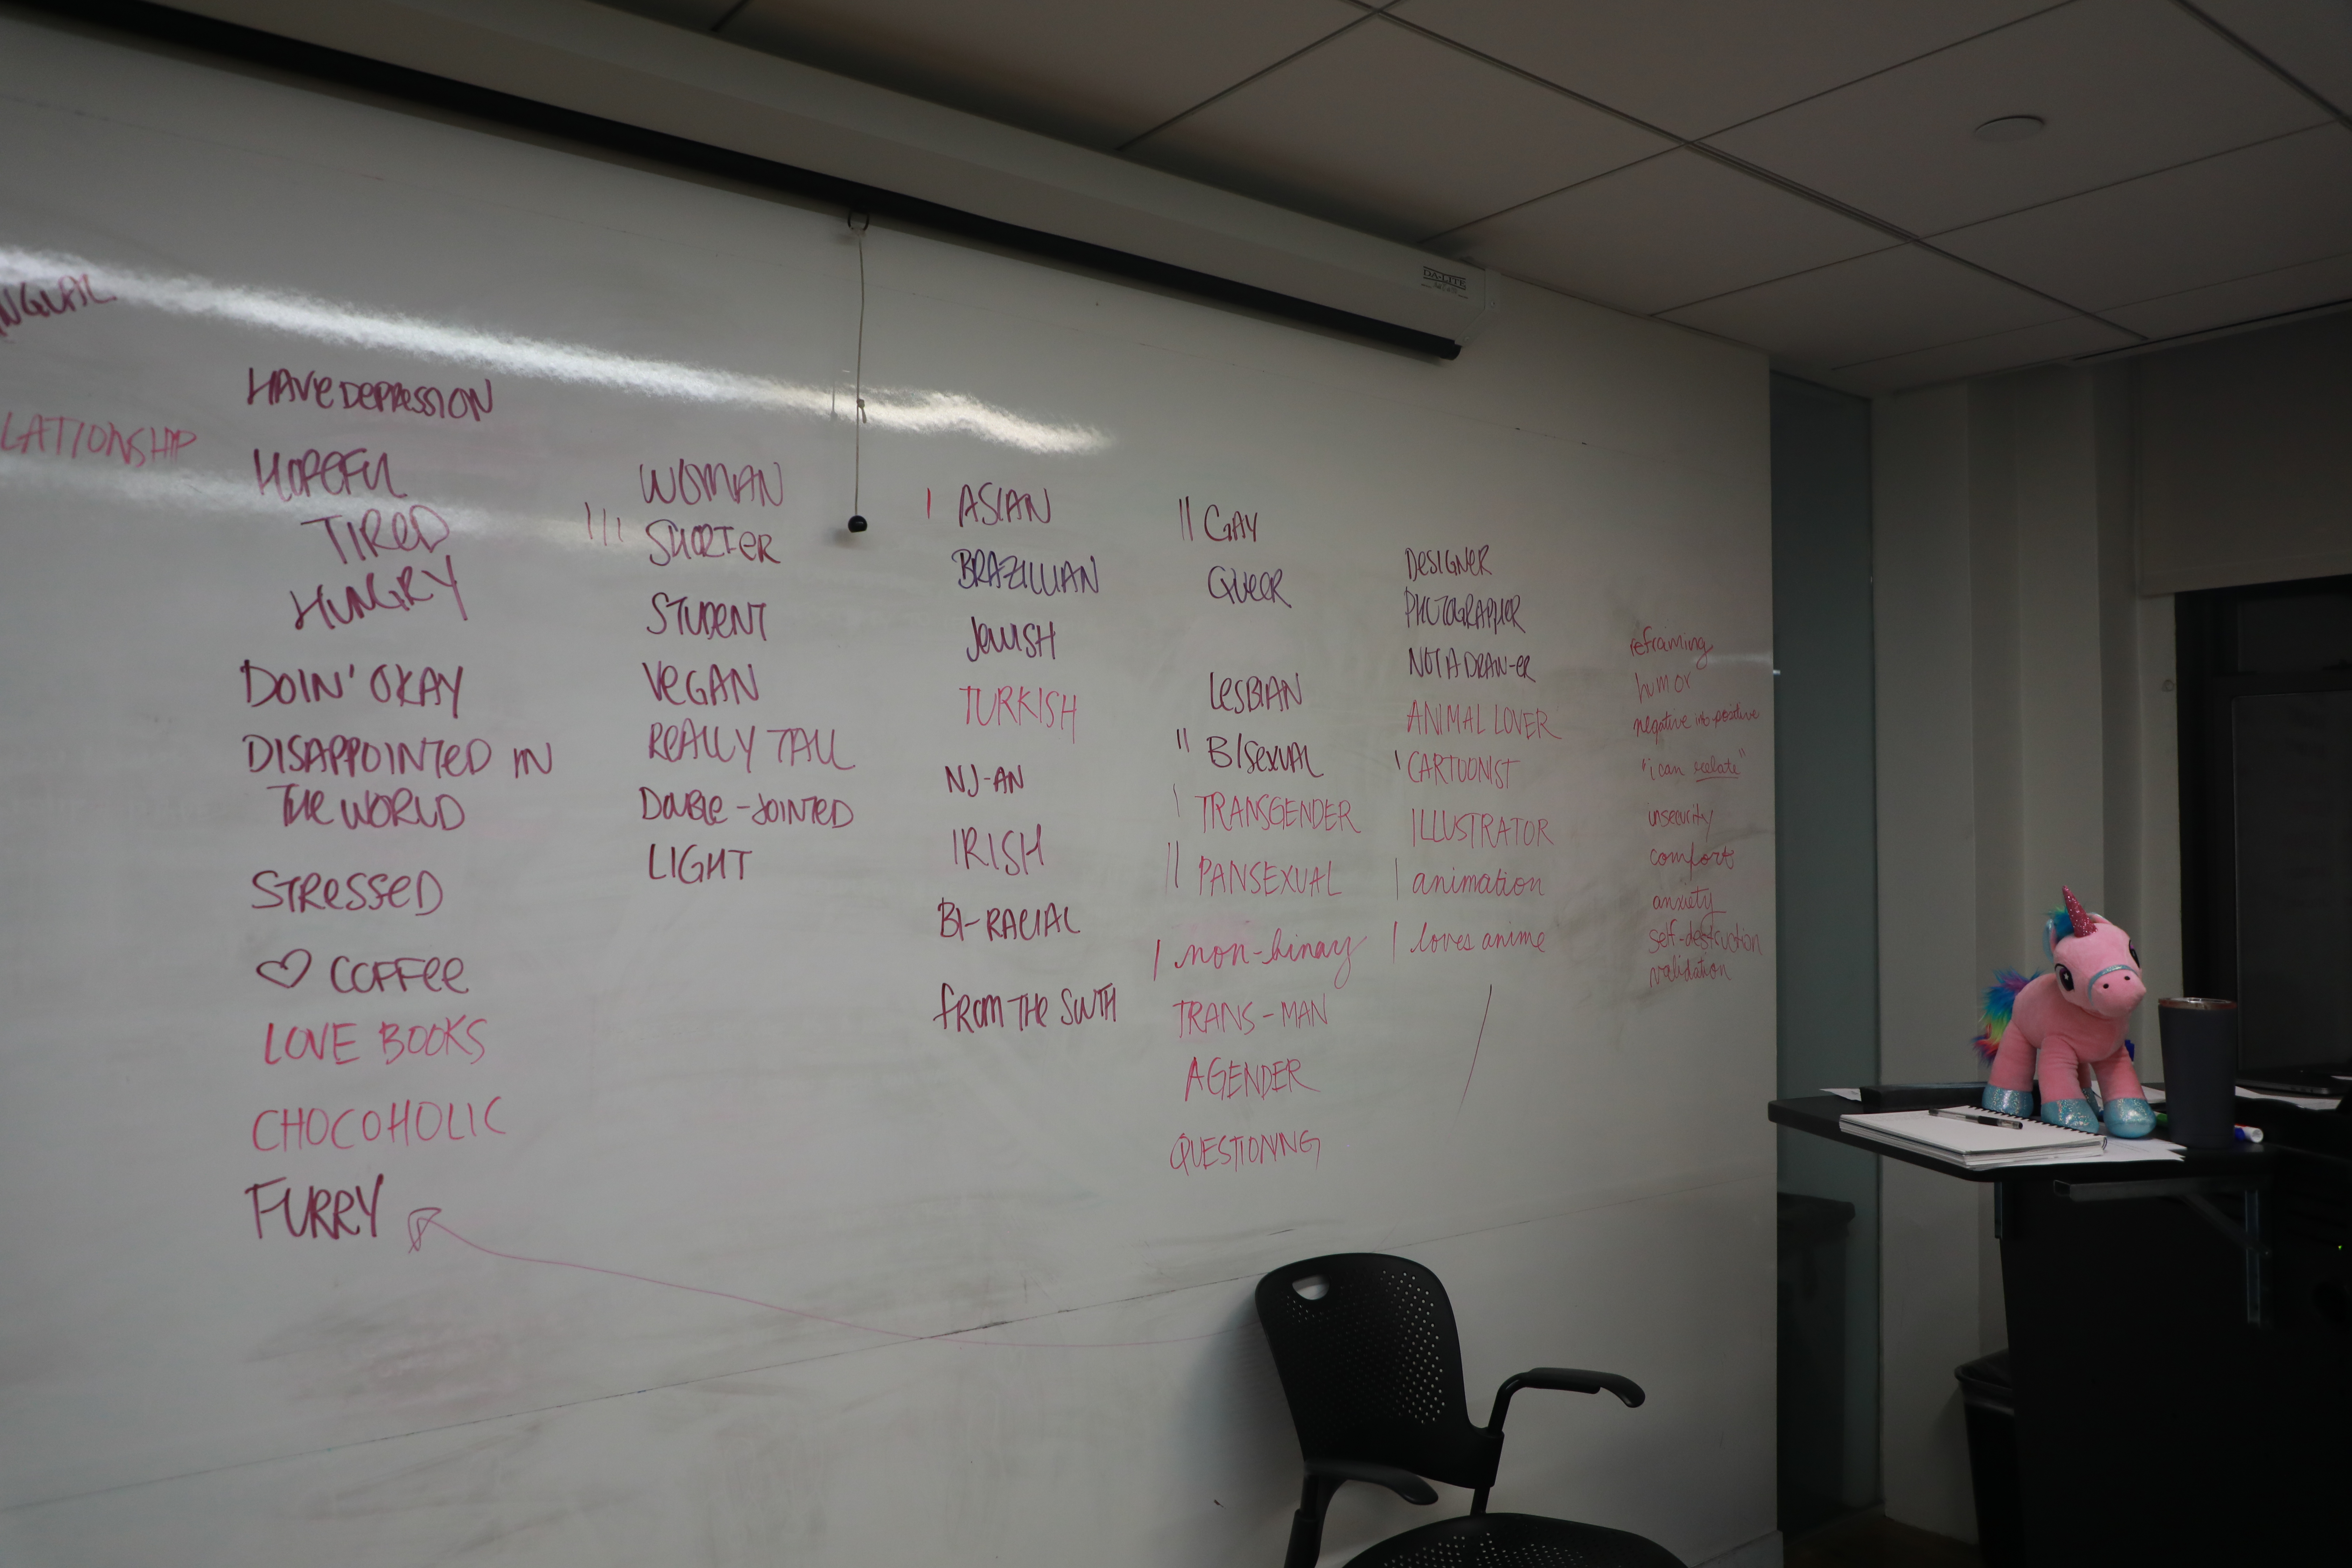 NGUAL
LATIONSHIP
HAVE DEPRESSION
HOPEFUL
TIRED
HUNGRY
DOIN' OKAY
DISAPPOINTED IN
THE WORLD
STRESSED
♡ COFFEE
LOVE BOOKS
CHOCOHOLIC
FURRY
WOMAN
||| SHORTER
STUDENT
VEGAN
REALLY TALL
DOUBLE-JOINTED
LIGHT
| ASIAN
BRAZILLIAN
JEWISH
TURKISH
NJ-AN
IRISH
BI-RACIAL
FROM THE SOUTH
|| GAY
QUEER
LESBIAN
|| BISEXUAL
| TRANSGENDER
|| PANSEXUAL
| non-binary
TRANS-MAN
AGENDER
QUESTIONING
DESIGNER
PHOTOGRAPHER
NOT A DRAW-ER
ANIMAL LOVER
| CARTOONIST
ILLUSTRATOR
| animation
| loves anime
reframing
humor
negative into positive
"i can relate"
insecurity
comfort
anxiety
self-destruction
validation
DA-LITE